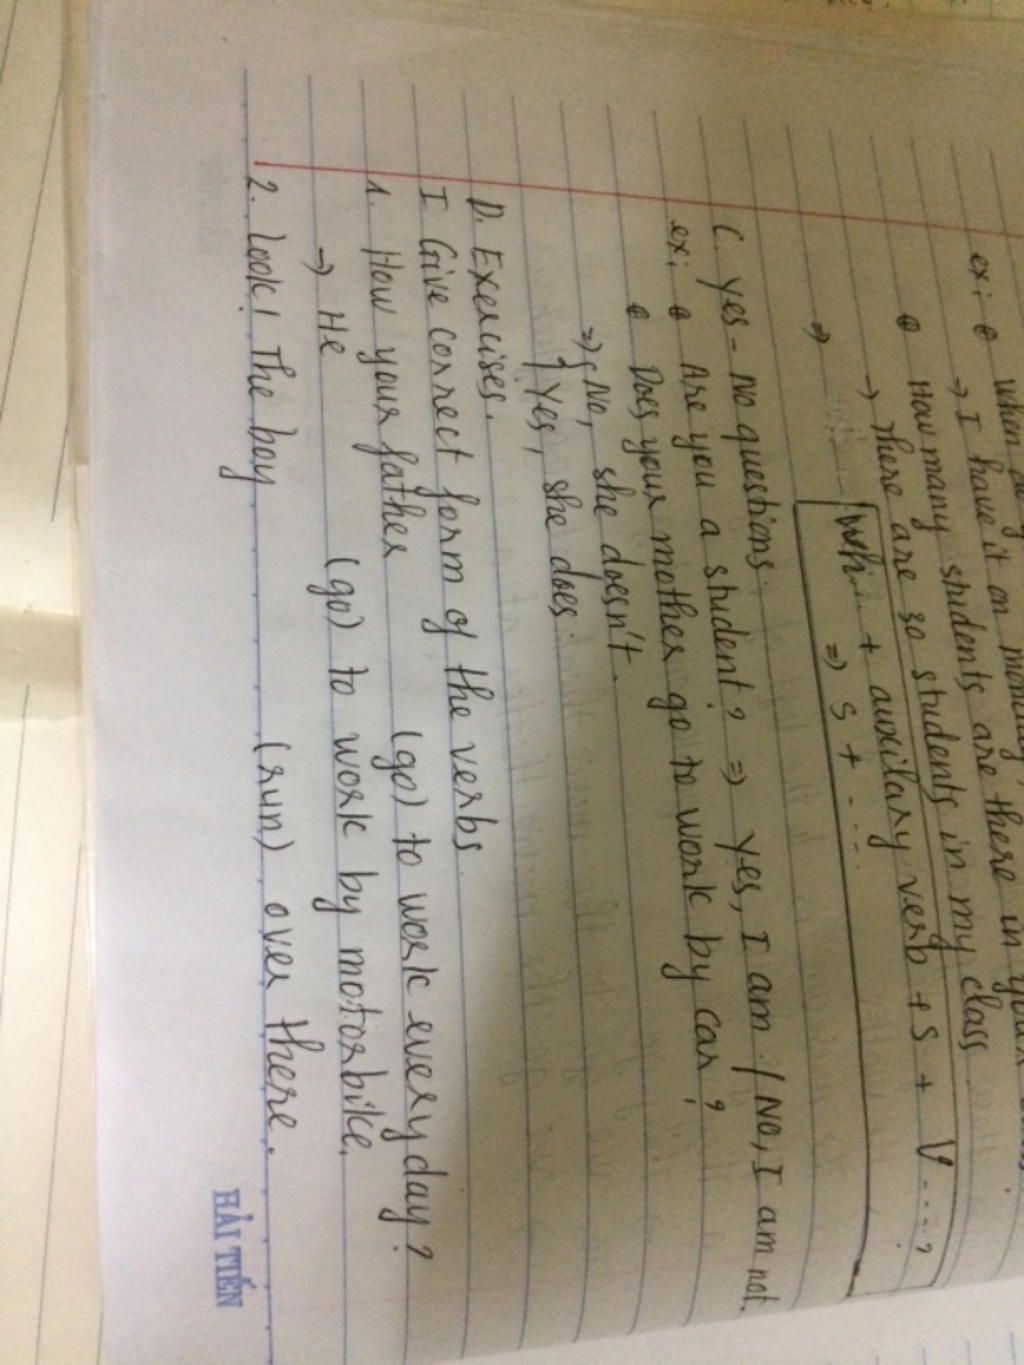 ex: When
⇒ I have it on monday,
How many students are there in your
→ there are 30 students in my class
Wh... + auxilary verb + S + V ....?
⇒ ⇒ S + ....
C. Yes - No questions.
ex: Are you a student? ⇒ Yes, I am / No, I am not.
Does your mother go to work by car?
⇒ { No, she doesn't.
{ Yes, she does.
D. Exercises.
I Give correct form of the verbs
1. How your father (go) to work every day?
→ He (go) to work by motorbike.
2. Look! The boy (run) over there.
HẢI TIẾN